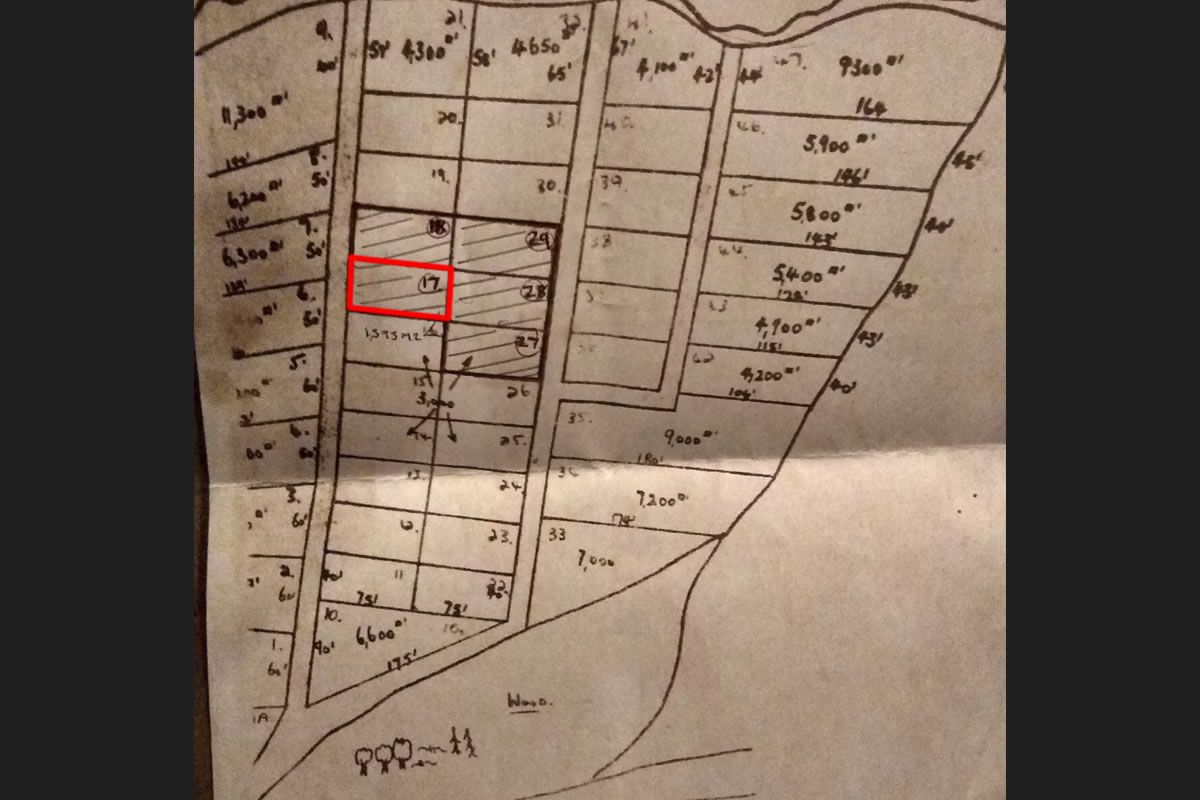 9.
11,300
21.
51' 4,300
32.
58' 4650
65'
67'
4,100 42'
44' 47. 9300
164
20.
31.
40.
46.
5,900
146'
45'
8.
50'
6,200
19.
30.
39.
45.
5,800
143'
40'
7.
50'
6,300
18
29
38
44.
5,400
128'
43'
6.
50'
17.
28
37
43
4,900
115'
43'
1,575 M2
16
27
36
42
4,200
104'
40'
5.
60'
15
3,000
26
35.
9,000
180'
4.
60'
14.
25.
34
7,200
174'
3.
60'
13.
24.
33
7,000
12.
23.
2.
60'
40'
11
75'
22
75'
10.
6,600
10.
90'
175'
1.
60'
1A
Wood.